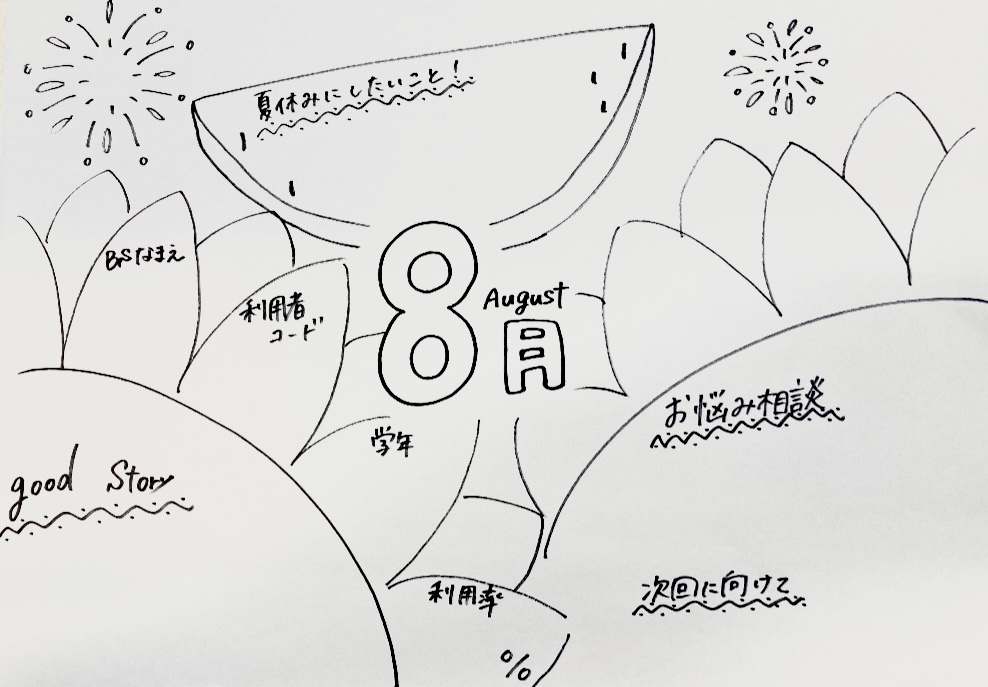 夏休みにしたいこと!
8月
August
BSなまえ
利用者
コード
学年
good Story
お悩み相談
利用率
%
次回に向けて